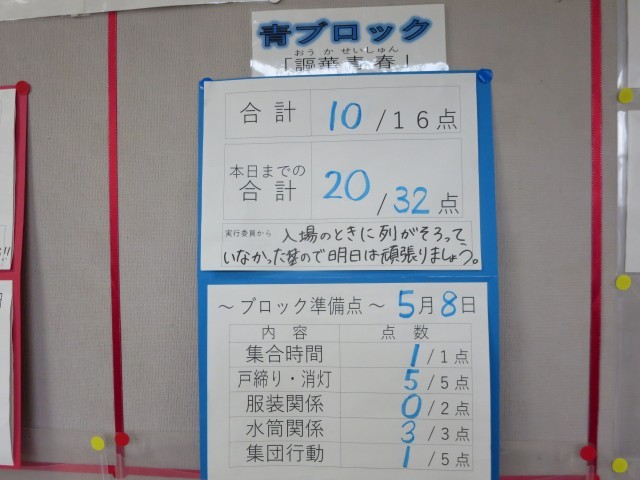 青ブロック
おうかせいしゅん
「謳華青春」
合計 10/16点
本日までの
合計 20/32点
実行委員から 入場のときに列がそろって
いなかったので明日は頑張りましょう。
～ブロック準備点～ 5月8日
内容 点数
集合時間 1/1点
戸締り・消灯 5/5点
服装関係 0/2点
水筒関係 3/3点
集団行動 1/5点